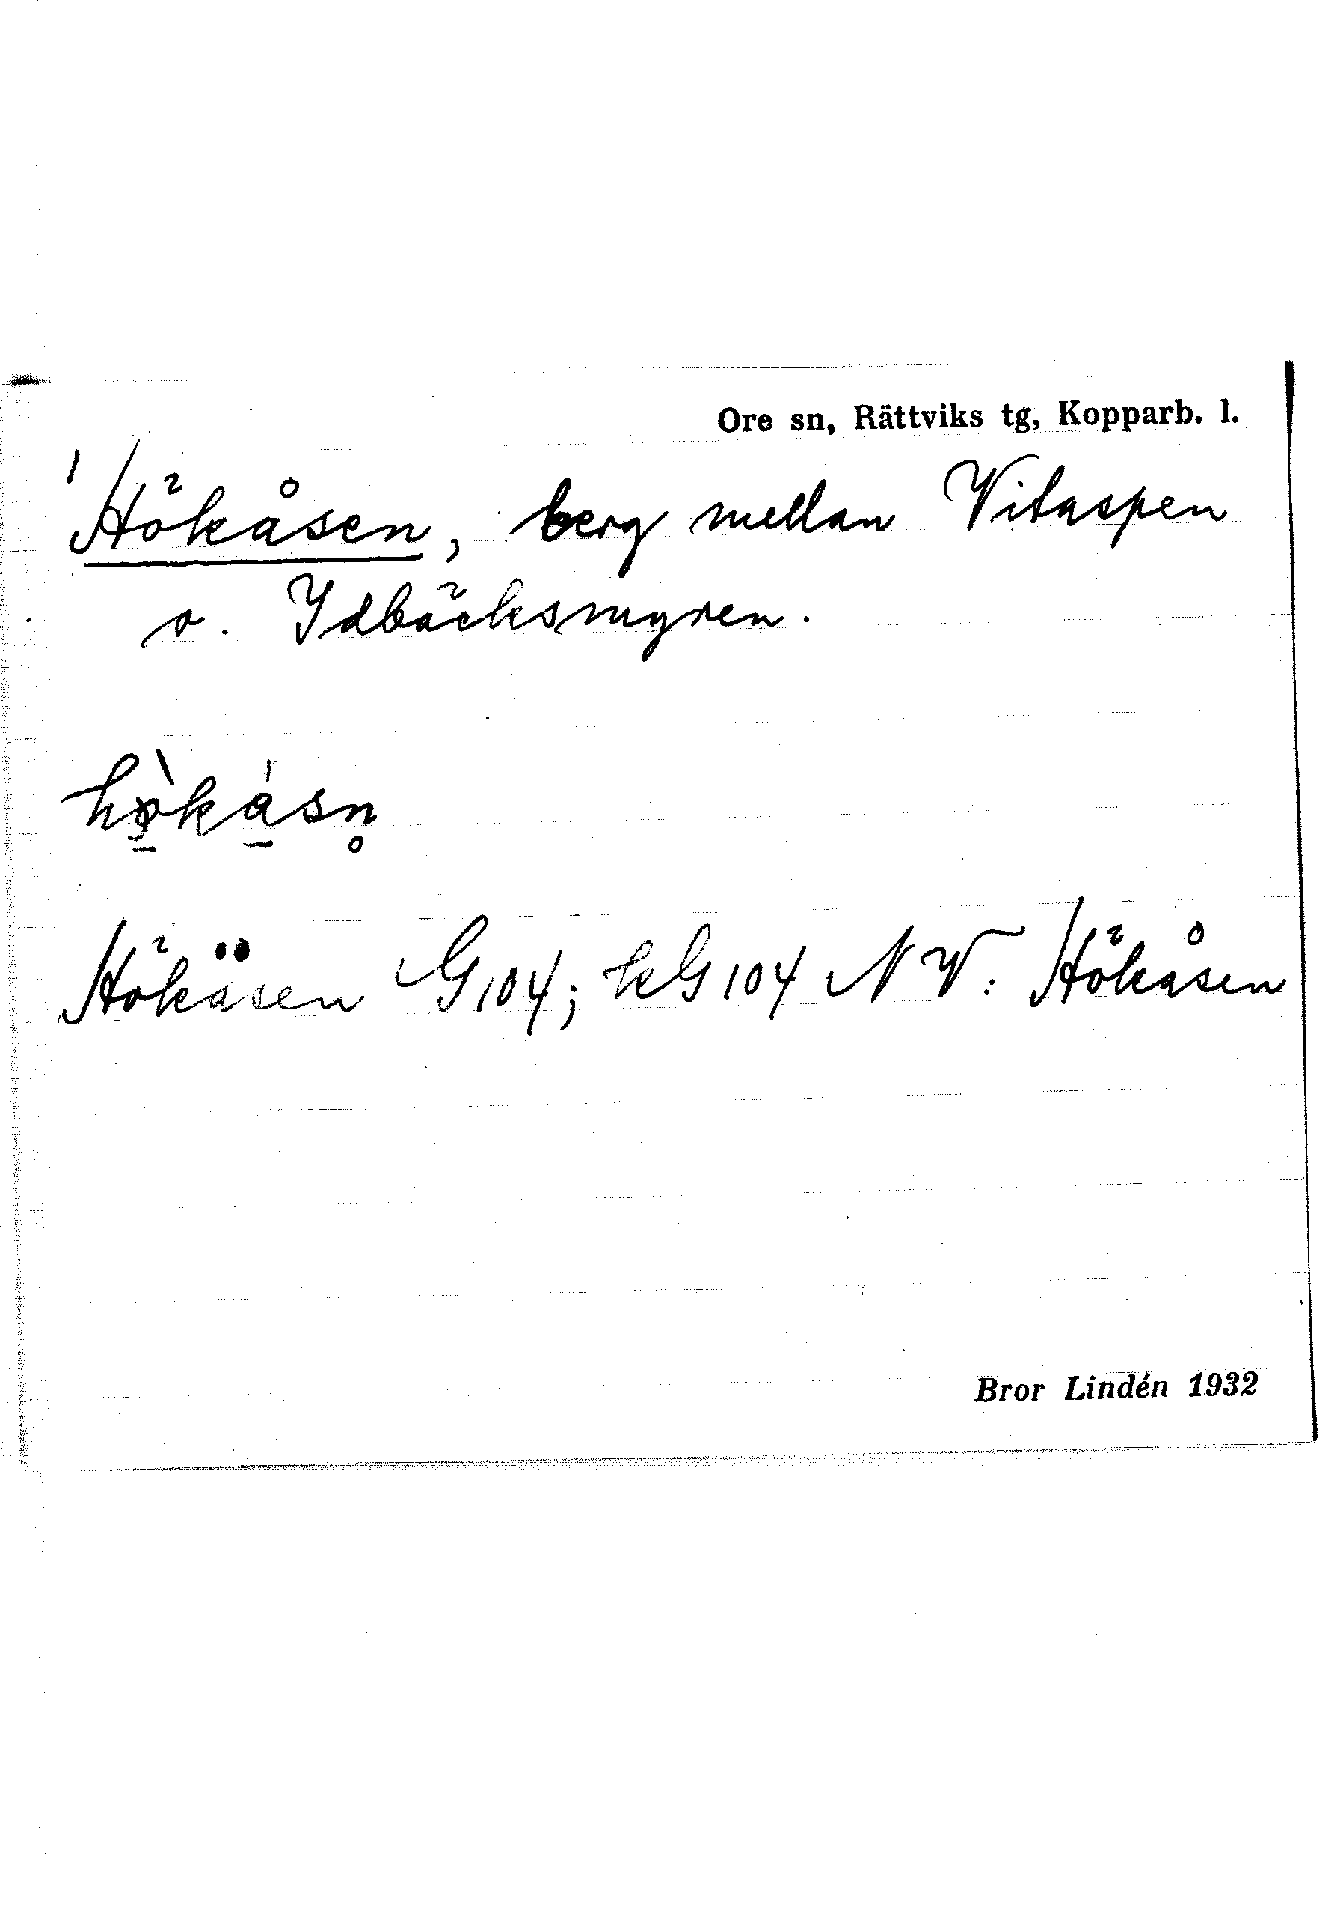 Ore sn, Rättviks tg, Kopparb. l.
Hökåsen, berg mellan Vitaspen
o. Idbäcksmyren.
Hökäsen G104; kG104 NV: Hökåsen
Bror Lindén 1932